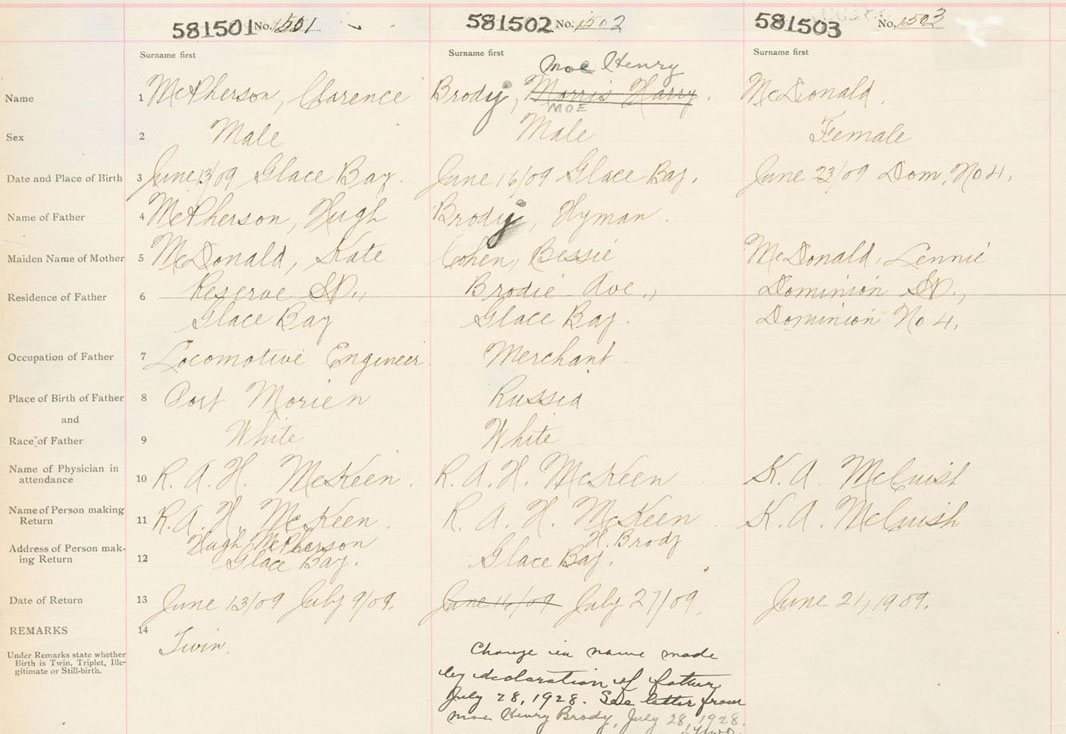 581501 No. 1501 581502 No. 1502 581503 No. 1503
Surname first Surname first Surname first
Moe Henry
Name 1 McPherson, Clarence Brody, Morris Harry. McDonald.
MOE
Sex 2 Male Male Female
Date and Place of Birth 3 June 13/09 Glace Bay. June 16/09 Glace Bay. June 23/09 Dom. No 4.
Name of Father 4 McPherson, Hugh Brody, Hyman.
Maiden Name of Mother 5 McDonald, Kate Cohen, Bessie McDonald, Lennie
Residence of Father 6 Reserve St., Brodie Ave., Dominion St.,
Glace Bay Glace Bay. Dominion No 4.
Occupation of Father 7 Locomotive Engineer. Merchant.
Place of Birth of Father 8 Port Morien Russia
and
Race of Father 9 White White
Name of Physician in
attendance 10 R. A. H. McKeen. R. A. H. McKeen K. A. McCuish
Name of Person making
Return 11 R. A. H. McKeen. R. A. H. McKeen K. A. McCuish
Hugh McPherson H. Brody
Address of Person mak-
ing Return 12 Glace Bay. Glace Bay.
Date of Return 13 June 13/09 July 9/09. June 16/09 July 27/09. June 21, 1909.
REMARKS 14 Twin.
Under Remarks state whether
Birth is Twin, Triplet, Ille-
gitimate or Still-birth.
Change in name made
by declaration of father
July 28, 1928. See letter from
Moe Henry Brody, July 28, 1928.